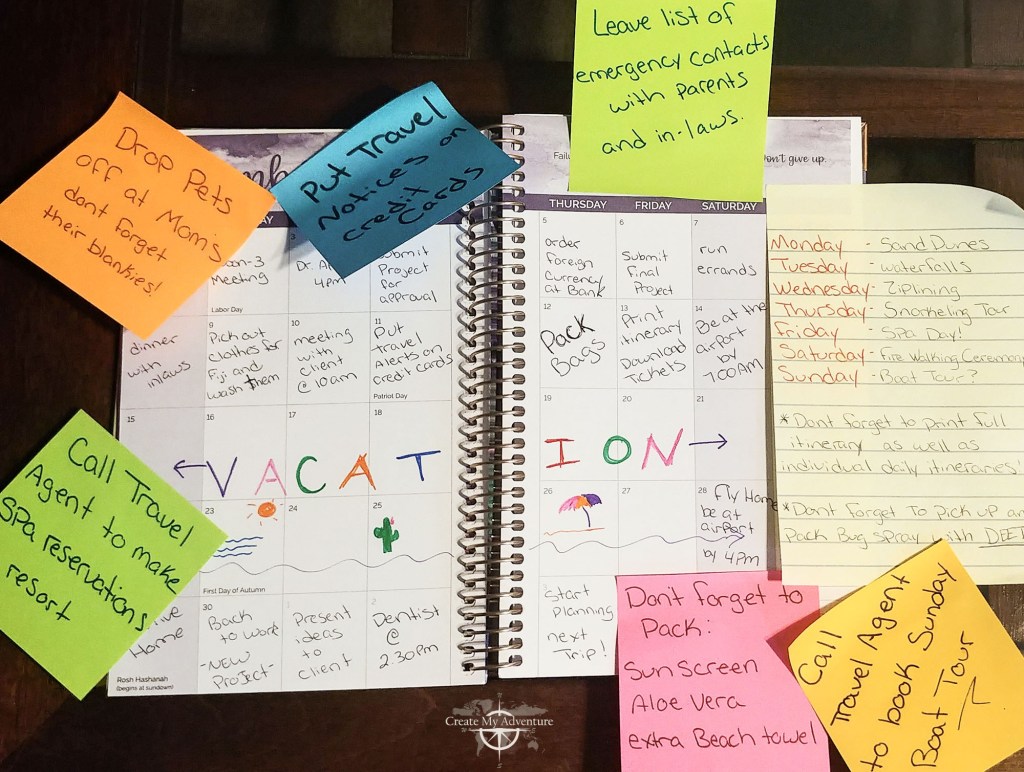 Leave list of
emergency contacts
with parents
and in-laws.
Drop Pets
off at Mom's
dont forget
their blankies!
Put Travel
Notices on
credit
Cards
Don't give up.
THURSDAY FRIDAY SATURDAY
3
Meeting
Labor Day
Dr.
4pm
Submit
Project
for
approval
5
order
Foreign
Currency
at Bank
6
Submit
Final
Project
7
run
errands
dinner
with
inlaws
9
Pick out
clothes for
Fiji and
wash them
10
meeting
with
client
@ 10am
11
Put
travel
Alerts on
credit cards
Patriot Day
12
Pack
Bags
13
Print
itinerary
Download
Tickets
14
Be at the
airport
by
7:00 AM
15 16 17 18 19 20 21
VACATION
23 24 25 26 27
First Day of Autumn
28 Fly Home
be at
airport
by 4pm
Home
Rosh Hashanah
(begins at sundown)
30
Back
to work
-New
Project-
1
Present
ideas
to
client
2
Dentist
@
2:30pm
Start
planning
next
Trip!
Monday - Sand Dunes
Tuesday - waterfalls
Wednesday - Ziplining
Thursday - Snorkeling Tour
Friday - Spa Day!
Saturday - Fire Walking Ceremony
Sunday - Boat Tour?
*Dont forget to print full
itinerary as well as
individual daily itineraries!
*Dont forget To pick up an
Pack Bug spray with DEET
Call Travel
Agent to make
Spa reservations
resort
Dont forget to
Pack:
Sun Screen
Aloe Vera
extra Beach towel
Call
Travel Agent
to book Sunday
Boat Tour
Create My Adventure